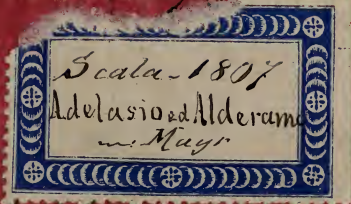 Scala - 1807
Adelasio ed Alderamo
Mayr